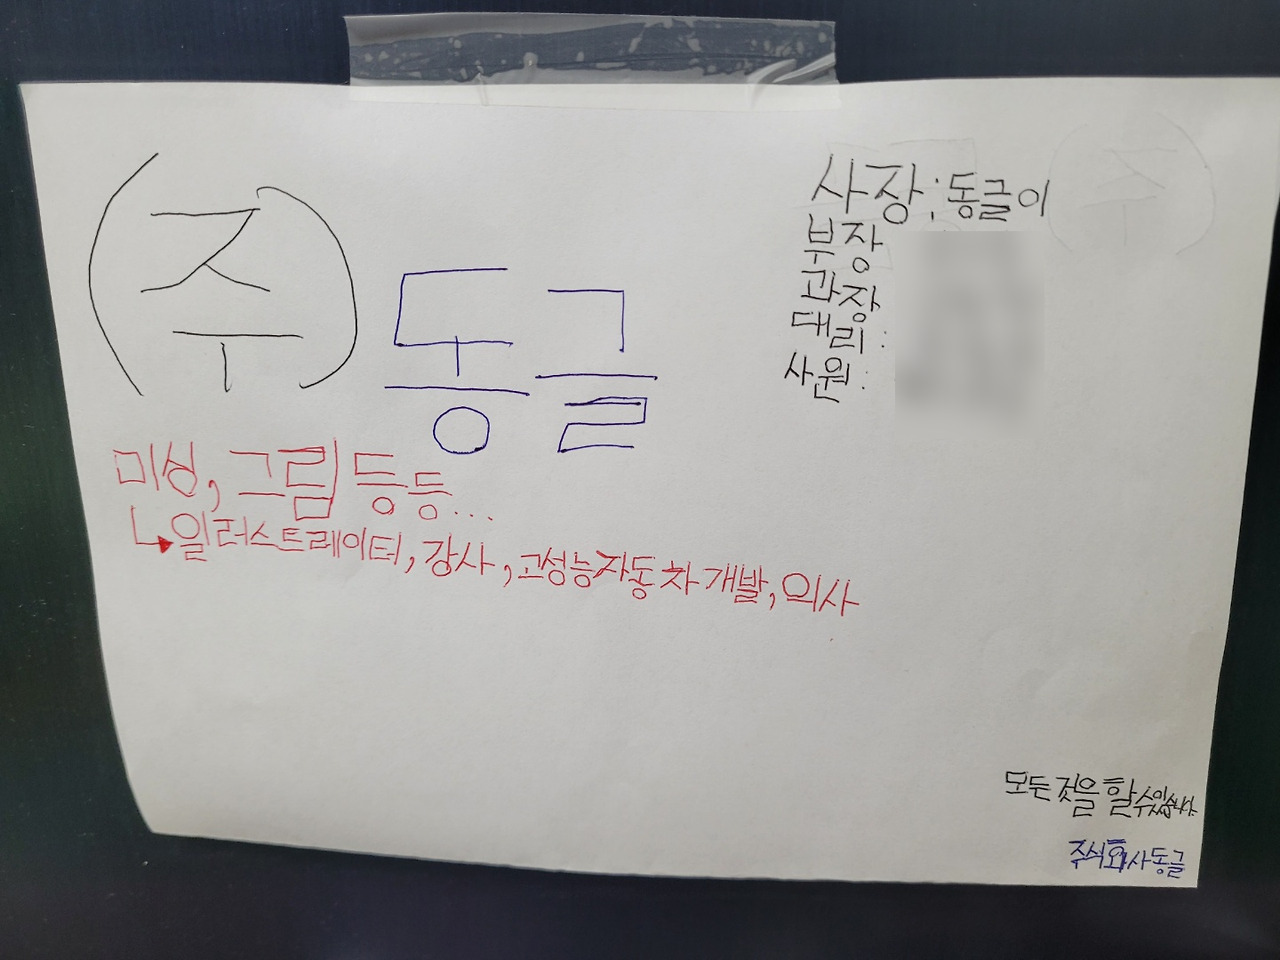 (주) 동글
사장 : 동글이
부장
과장
대리 :
사원 :
미싱, 그림 등등...
↳일러스트레이터, 강사, 고성능자동차 개발, 의사
모든것을 할수있습니다
주식회사동글